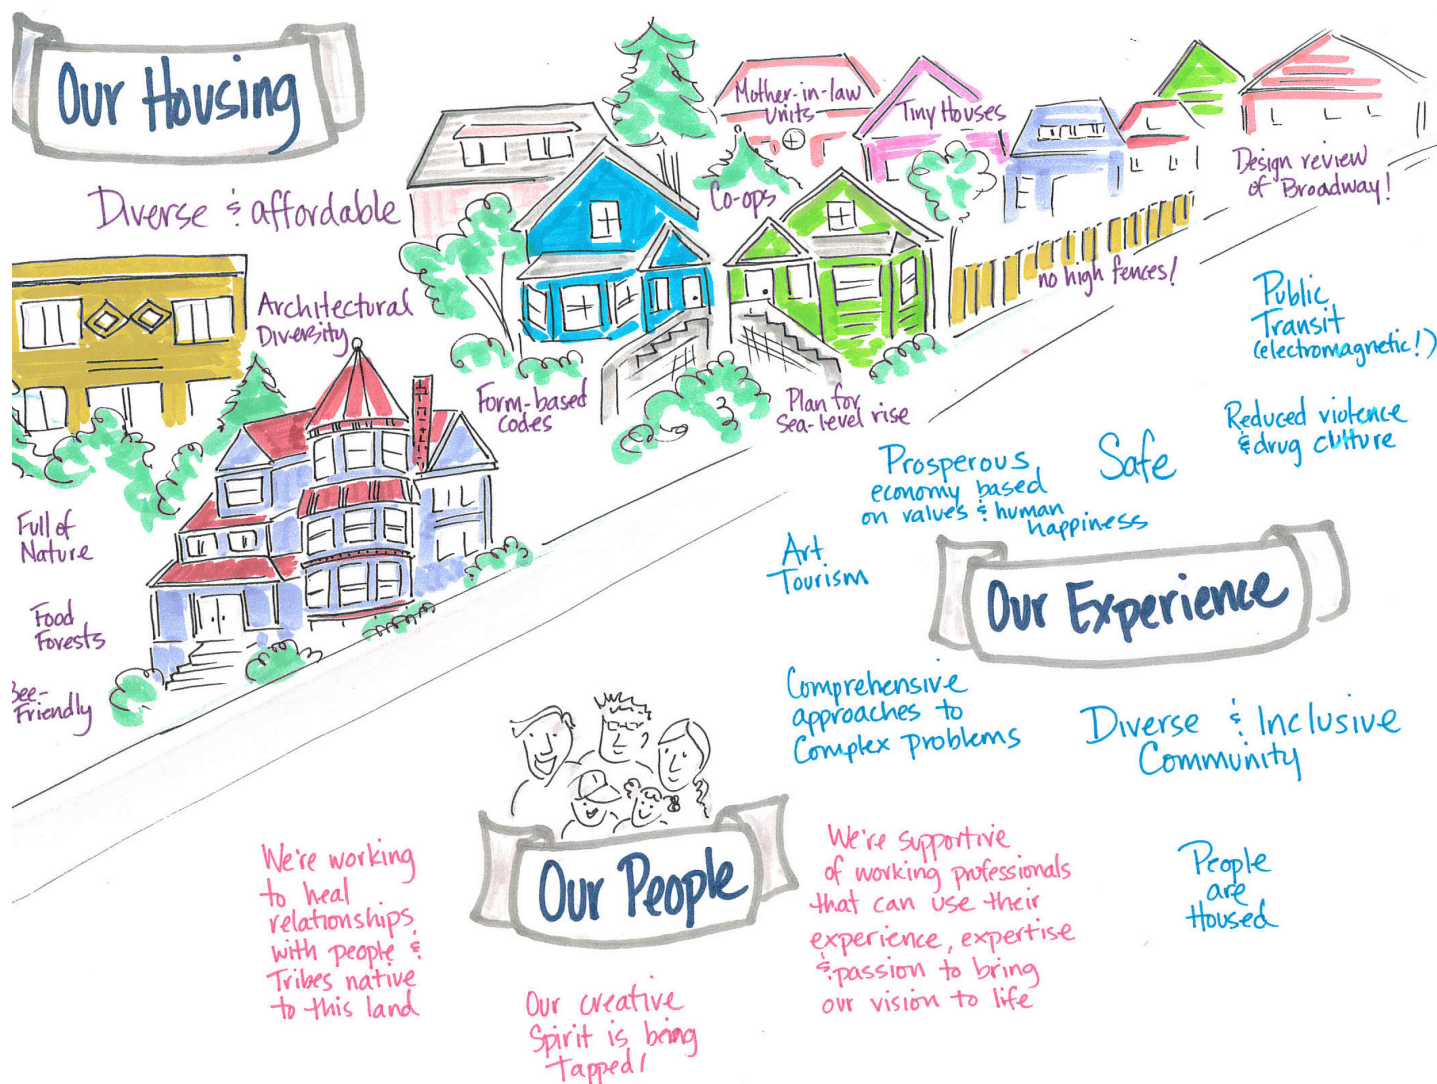 Our Housing
Diverse & affordable
Mother-in-law
Units
Tiny Houses
Co-ops
Design review
of Broadway!
no high fences!
Architectural
Diversity
Form-based
codes
Plan for
Sea-level rise
Full of
Nature
Food
Forests
Bee-
Friendly
Public
Transit
(electromagnetic!)
Reduced violence
& drug culture
Safe
Prosperous
economy based
on values & human
happiness
Art
Tourism
Our Experience
Comprehensive
approaches to
Complex problems
Diverse & Inclusive
Community
People
are
Housed
Our People
We're working
to heal
relationships
with people &
Tribes native
to this land
Our creative
Spirit is being
Tapped!
We're supportive
of working professionals
that can use their
experience, expertise
& passion to bring
our vision to life